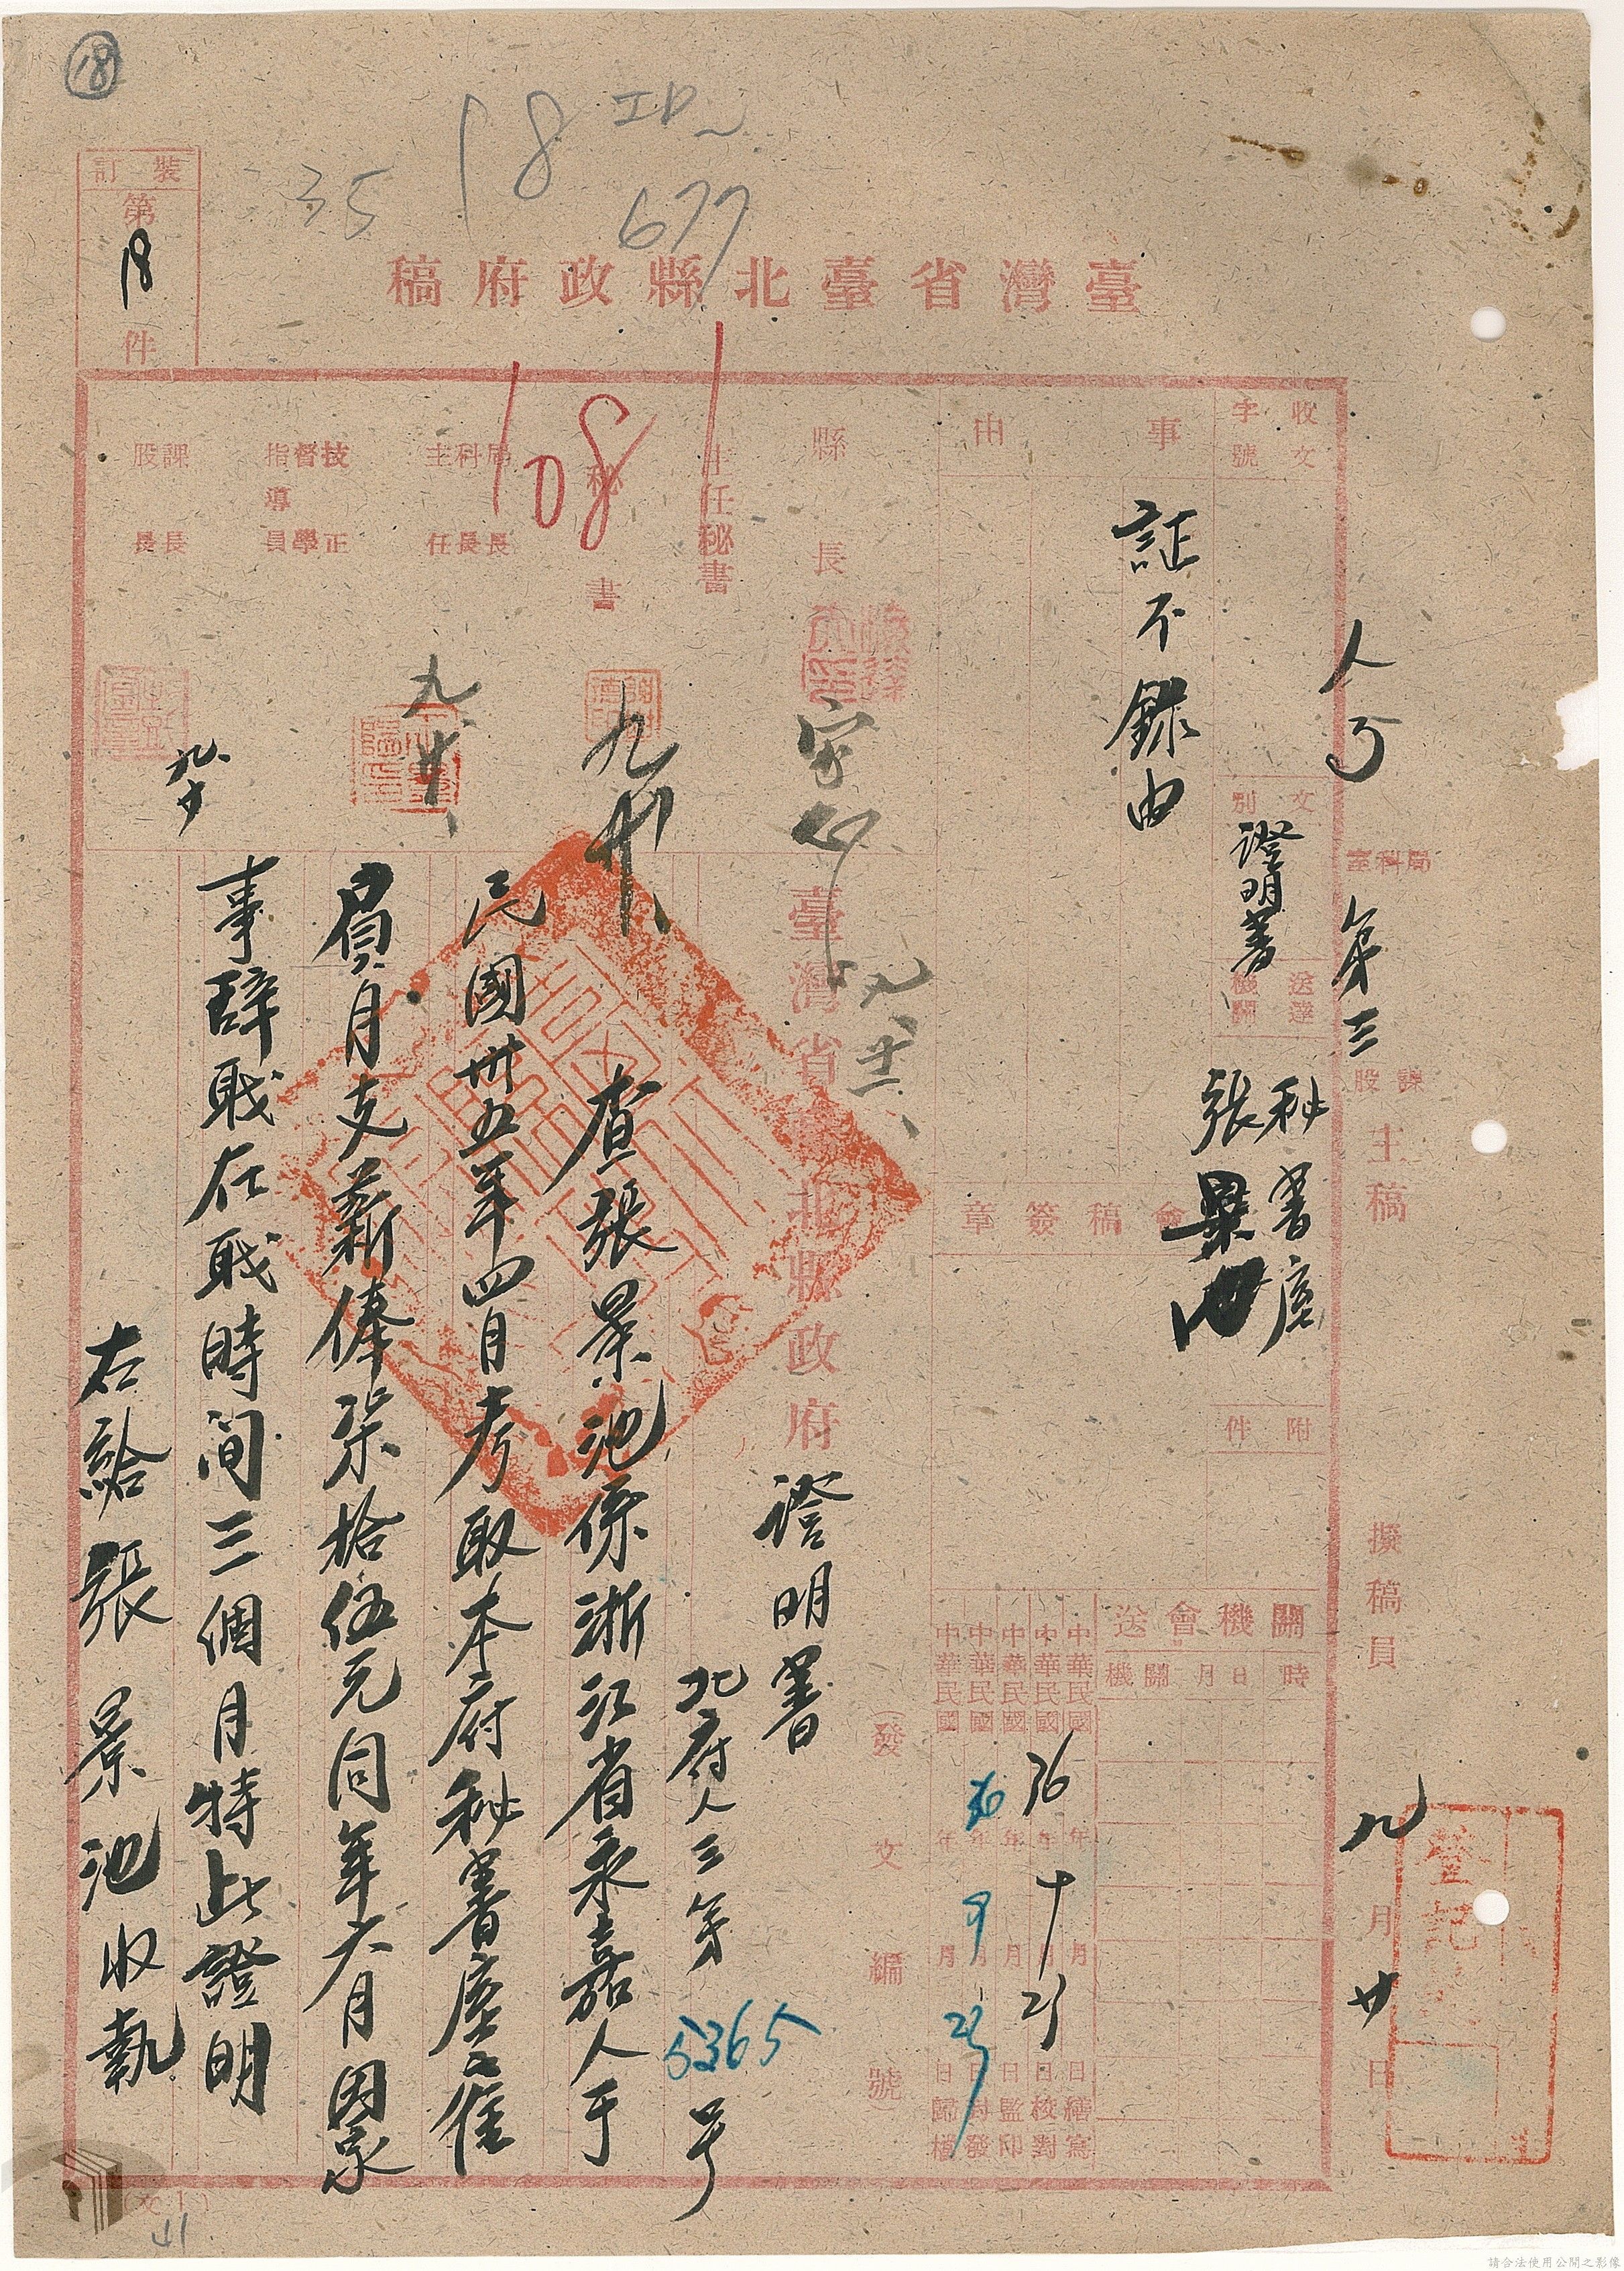 18
35
18
677
裝訂
第18件
臺灣省臺北縣政府稿
人事
局科室
第三
課股
主稿
擬稿員
九月廿日
登記
收文
字號
文別
證明書
送達機關
秘書室
張景池
附件
事由
証不錄由
會稿簽章
關機會送
機關
月日時
中華民國36年十月21日繕寫
中華民國年月日校對
中華民國年月日監印
中華民國36年9月23日封發
中華民國年月日歸檔
(發文編號)
縣長
主任秘書
秘書
局科主
長長任
技督指導
正學員
課股
長長
108
九、廿
九、廿
九、廿
臺灣省臺北縣政府證明書
北府人三第5365号
查張景池係浙江省永嘉人于
民國卅五年四月考取本府秘書室雇
員月支薪俸柒拾伍元同年六月因家
事辞职在职時间三個月特此證明
右給張景池收執
41
請合法使用公開之影像